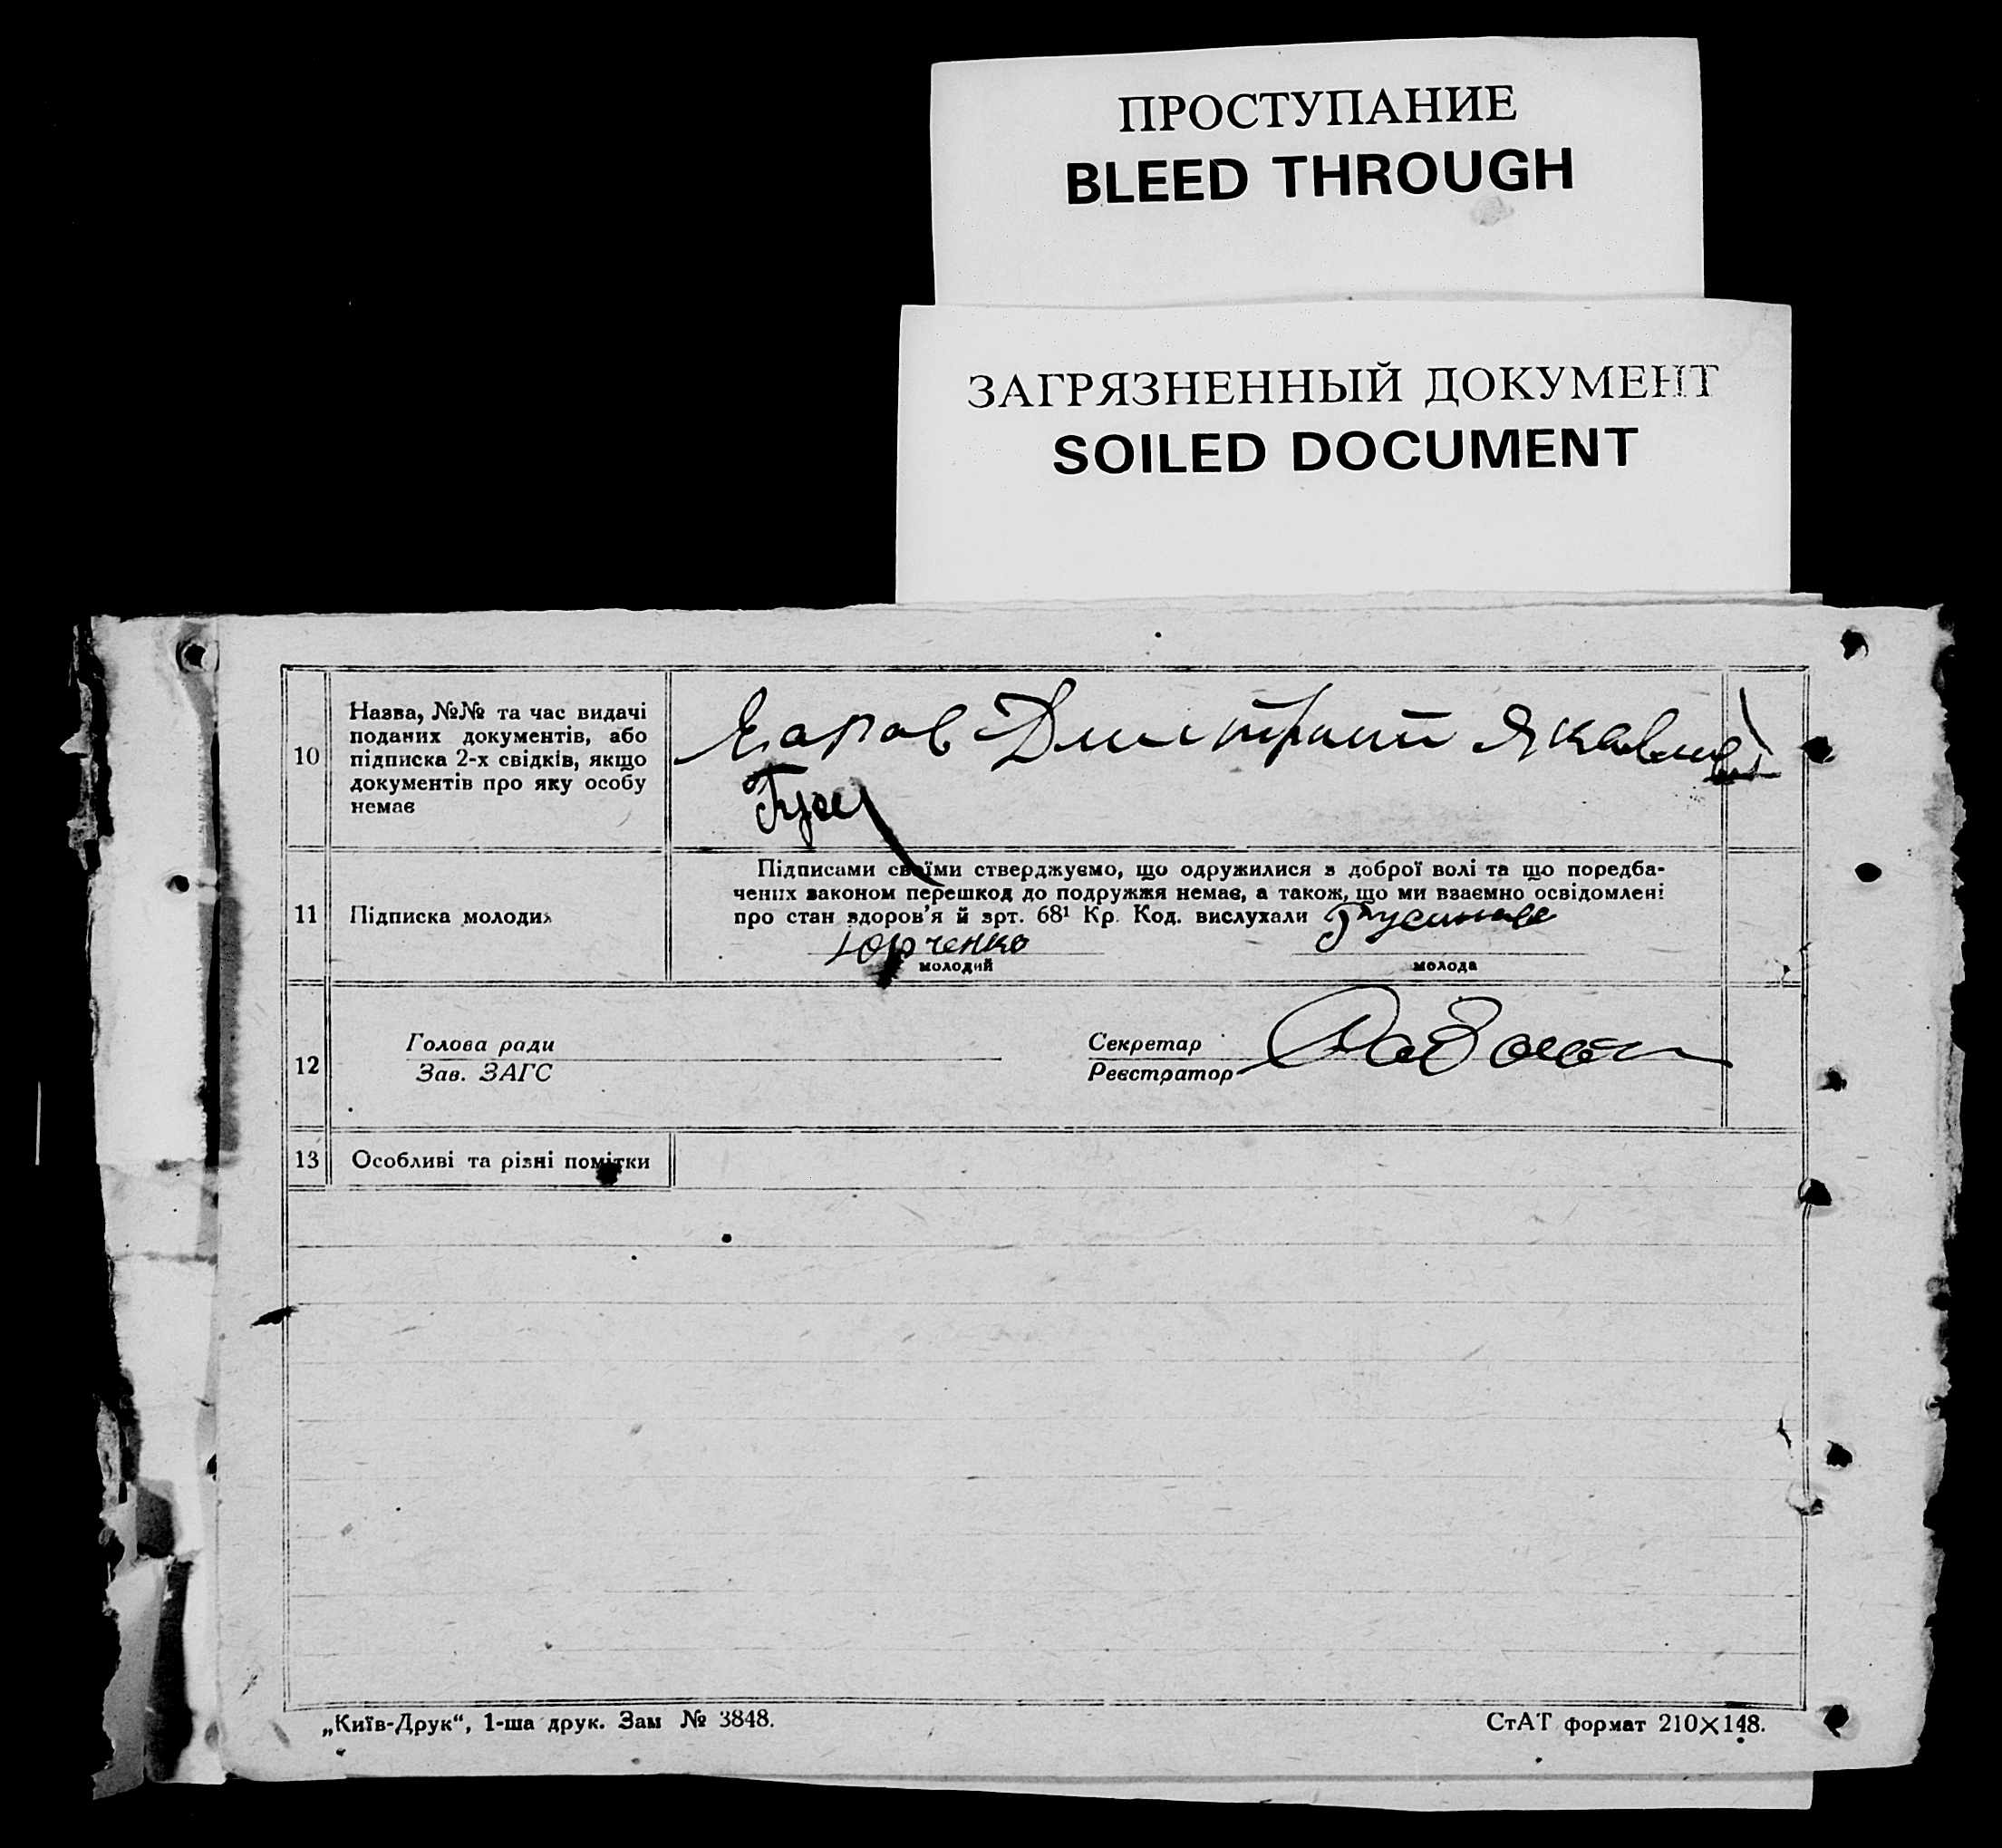 ПРОСТУПАНИЕ
BLEED THROUGH
ЗАГРЯЗНЕННЫЙ ДОКУМЕНТ
SOILED DOCUMENT
10
Назва, №№ та час видачі
поданих документів, або
підписка 2-х свідків, якщо
документів про яку особу
немає
Дмитрий
11
Підписка молодих
Підписами своїми стверджуємо, що одружилися з доброї волі та що поредба-
чених законом перешкод до подружжя немає, а також, що ми взаємно освідомлені
про стан здоров'я й зрт. 68¹ Кр. Код. вислухали
Юрченко
молодий
молода
12
Голова ради
Зав. ЗАГС
Секретар
Реєстратор
13
Особливі та різні помітки
„Київ-Друк“, 1-ша друк. Зам № 3848.
СтАТ формат 210×148.